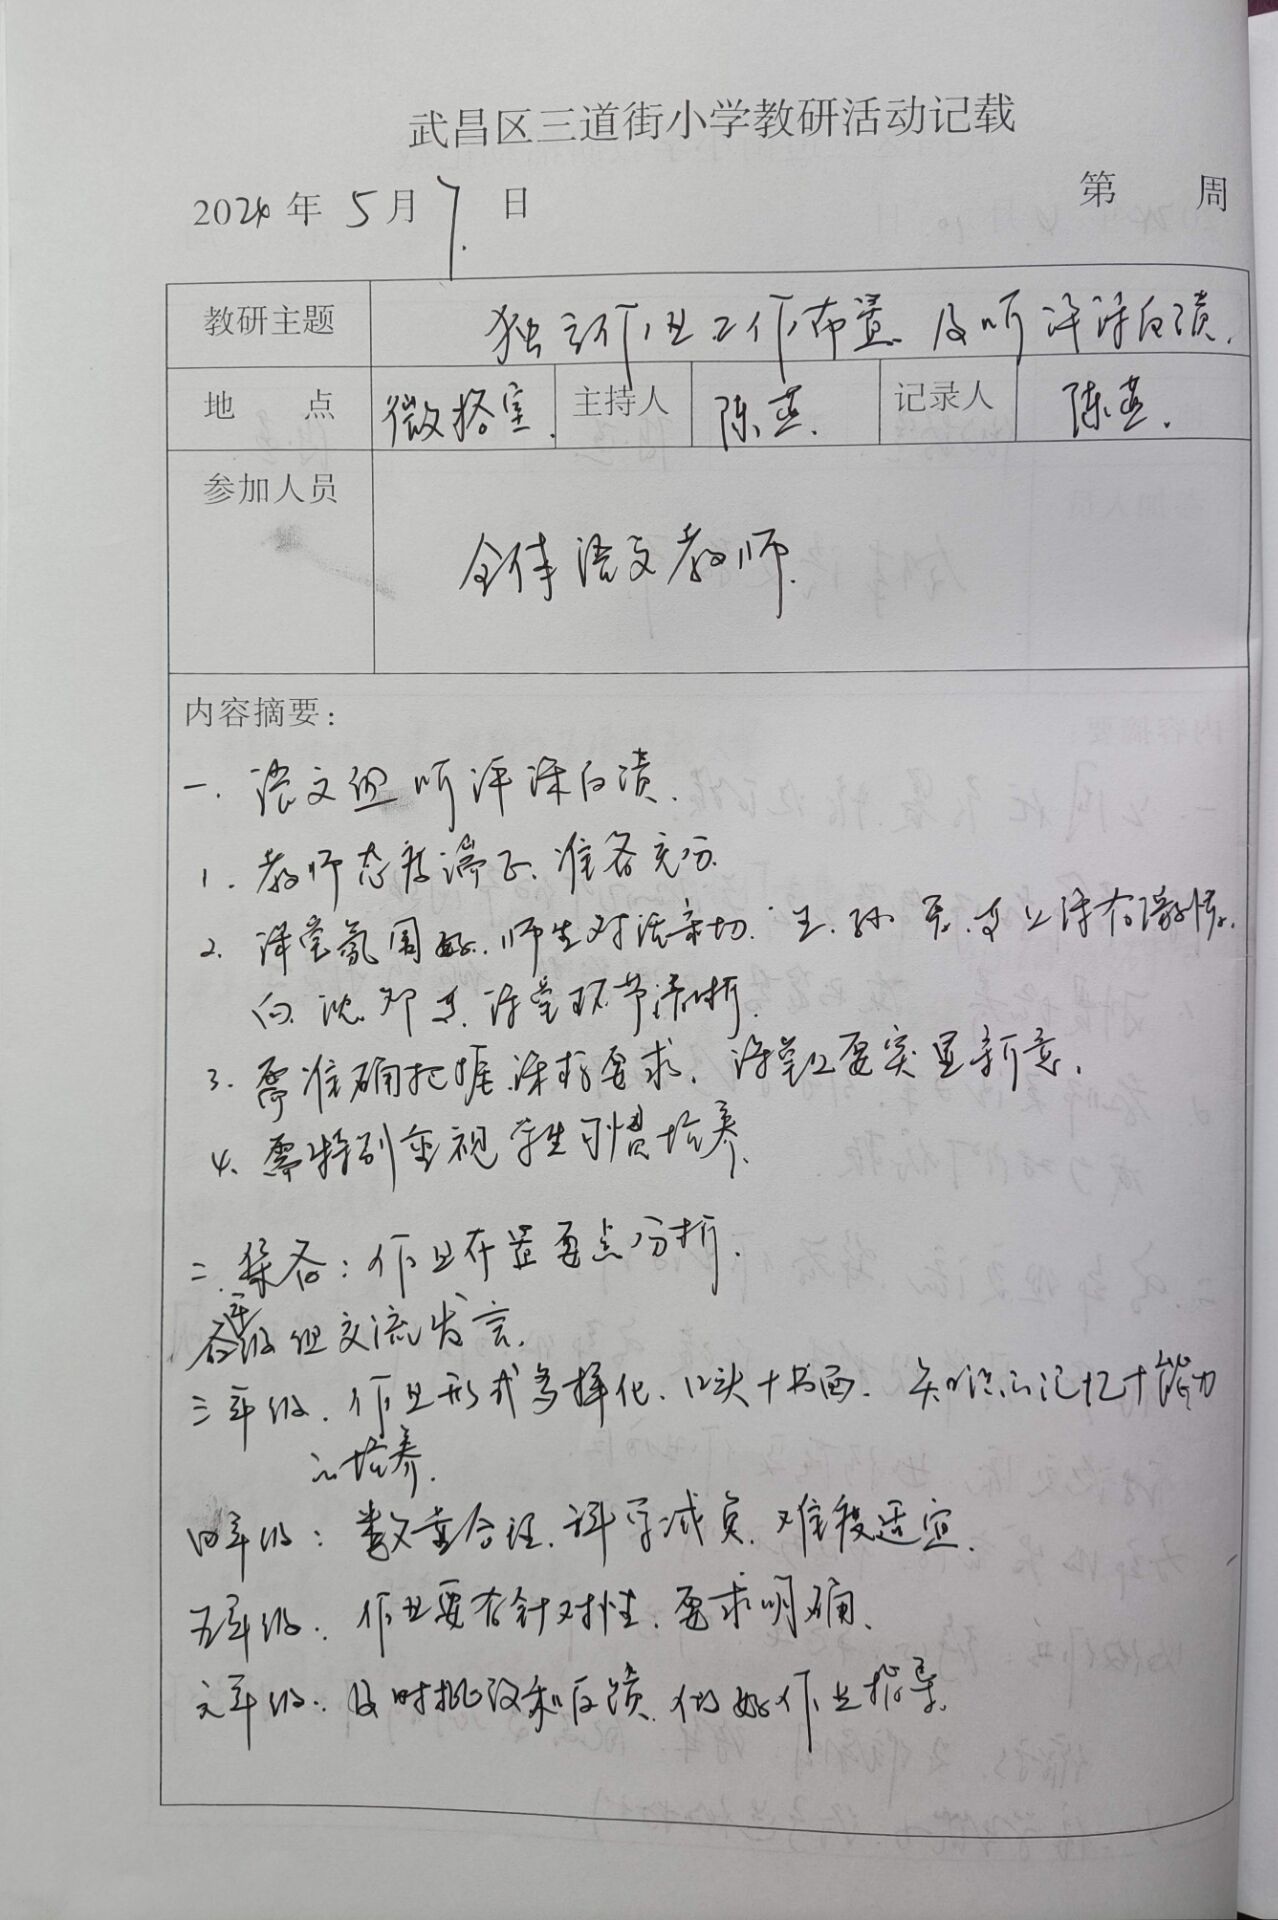 武昌区三道街小学教研活动记载
2024年5月7日 第 周
教研主题 作业工作布置及听评课反馈.
地 点 微格室. 主持人 陈燕. 记录人 陈燕.
参加人员
全体语文教师.
内容摘要:
一. 语文组听评课反馈.
1. 教师态度端正. 准备充分.
2. 课堂氛围好. 师生对话亲切. 王. 孙 上课有激情.
向. 沈. 邓 课堂环节清晰.
3. 需准确把握课标要求. 课堂上要突显新意.
4. 需特别重视学生习惯培养.
二. 作业布置要点分析.
各年级组交流发言.
三年级. 作业形式多样化. 口头+书面. 知识的记忆+能力
的培养.
四年级: 数量合理. 科学减负. 难度适宜.
五年级: 作业要有针对性. 要求明确.
六年级: 及时批改和反馈. 做好作业指导.